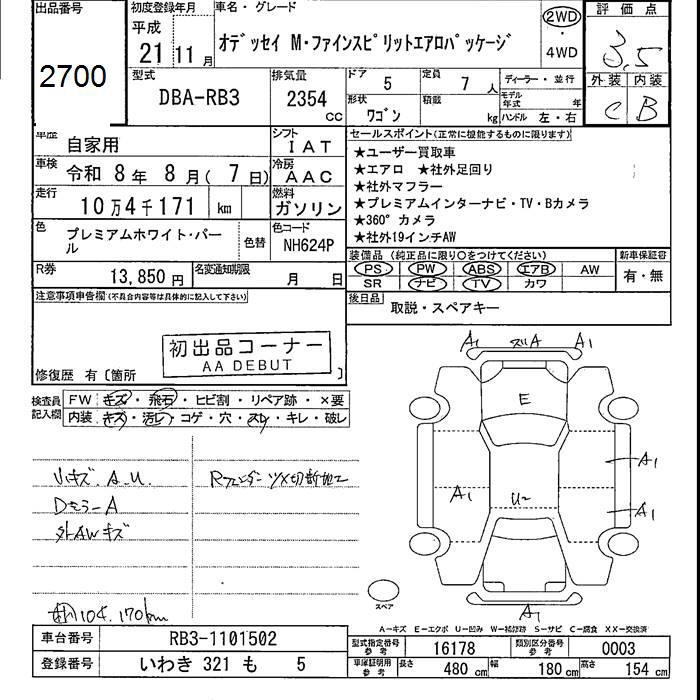 出品番号
2700
初度登録年月
平成
21 11月
車名・グレード
オデッセイ M・ファインスピリットエアロパッケージ
2WD
・
4WD
評価点
3.5
外装 内装
C B
型式
DBA-RB3
排気量
2354 cc
ドア 5
定員 7 人
形状 ワゴン
積載 kg
ディーラー・並行
モデル年式 年
ハンドル 左・右
車歴 自家用
シフト IAT
車検 令和 8年 8月( 7日)
冷房 AAC
走行 10万4千171 km
燃料 ガソリン
色 プレミアムホワイト・パール
色替
色コード NH624P
R券 13,850円
名変通知期限 月 日
セールスポイント(正常に機能するものに限ります)
★ユーザー買取車
★エアロ ★社外足回り
★社外マフラー
★プレミアムインターナビ・TV・Bカメラ
★360°カメラ
★社外19インチAW
装備品 (純正品に限り○をつけてください)
PS PW ABS エアB AW
SR ナビ TV カワ
新車保証書
有・無
後日品 取説・スペアキー
注意事項申告欄(不具合内容等は具体的に記入して下さい)
初出品コーナー
AA DEBUT
修復歴 有〔箇所 〕
検査員記入欄
FW キズ・飛石・ヒビ割・リペア跡・×要
内装 キズ・汚レ・コゲ・穴・スレ・キレ・破レ
小キズ A.U.
Dミラー A
外AWキズ
Rフェンダーツメ切断加工
104,170km
A1 スリA A1
E
A1
A1
A1
U2
A1
スペア
A－キズ E－エクボ U－凹み W－補修跡 S－サビ C－腐食 XX－交換済
車台番号 RB3-1101502
登録番号 いわき 321 も 5
型式指定番号 参考 16178
類別区分番号 参考 0003
車庫証明用 参考 長さ 480 cm 幅 180 cm 高さ 154 cm